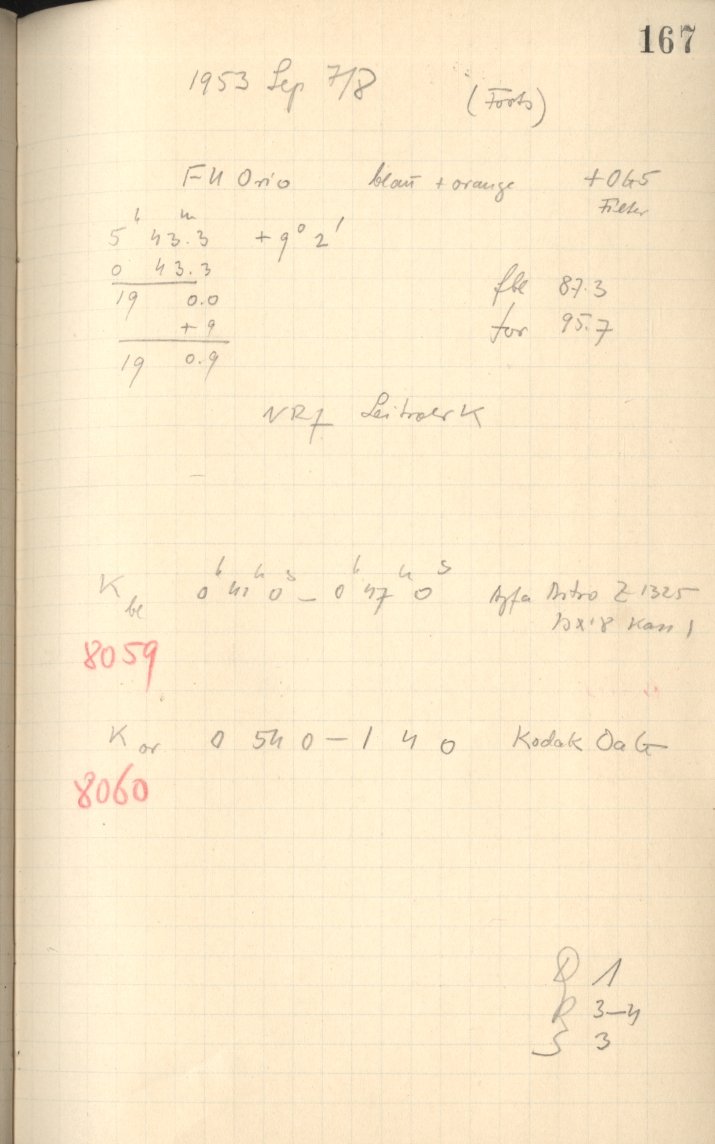 167
1953 Sep 7/8 (Forts)
FU Orio blau + orange + OG5
Filter
5h 43.3m + 9° 2'
0 43.3
19 0.0
+ 9
19 0.9
fbl 87.3
for 95.7
NR7
K bl 0h 41m 0s – 0h 47m 0s Agfa Astro Z 1325
Kass 1
8059
K or 0 54 0 – 1 4 0 Kodak OaG
8060
D 1
R 3–4
S 3